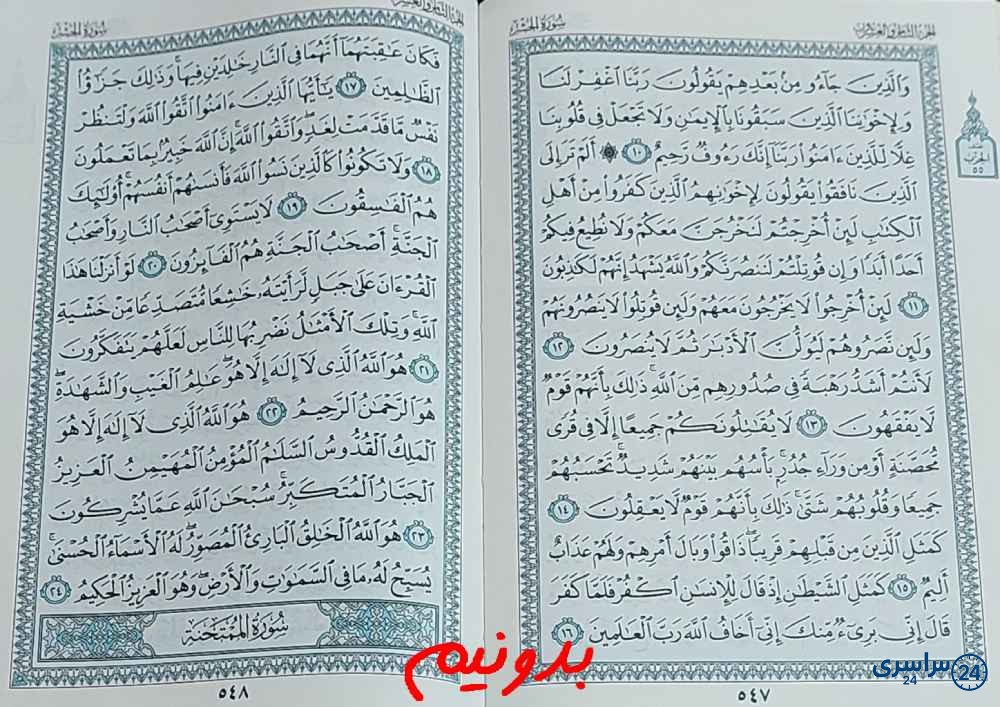 الجزء الثامن والعشرون
سورة الحشر
والذين جاءو من بعدهم يقولون ربنا اغفر لنا
ولإخواننا الذين سبقونا بالإيمان ولا تجعل في قلوبنا
غلا للذين ءامنوا ربنا إنك رءوف رحيم ١٠ ۞ ألم تر إلى
الذين نافقوا يقولون لإخوانهم الذين كفروا من أهل
الكتاب لئن أخرجتم لنخرجن معكم ولا نطيع فيكم
أحدا أبدا وإن قوتلتم لننصرنكم والله يشهد إنهم لكاذبون
١١ لئن أخرجوا لا يخرجون معهم ولئن قوتلوا لا ينصرونهم
ولئن نصروهم ليولن الأدبار ثم لا ينصرون ١٢
لأنتم أشد رهبة في صدورهم من الله ذلك بأنهم قوم
لا يفقهون ١٣ لا يقاتلونكم جميعا إلا في قرى
محصنة أو من وراء جدر بأسهم بينهم شديد تحسبهم
جميعا وقلوبهم شتى ذلك بأنهم قوم لا يعقلون ١٤
كمثل الذين من قبلهم قريبا ذاقوا وبال أمرهم ولهم عذاب
أليم ١٥ كمثل الشيطان إذ قال للإنسان اكفر فلما كفر
قال إني بريء منك إني أخاف الله رب العالمين ١٦
٥٤٧
نصف
الحزب
٥٥
الجزء الثامن والعشرون
سورة الحشر
فكان عاقبتهما أنهما في النار خالدين فيها وذلك جزاؤا
الظالمين ١٧ يا أيها الذين ءامنوا اتقوا الله ولتنظر
نفس ما قدمت لغد واتقوا الله إن الله خبير بما تعملون
١٨ ولا تكونوا كالذين نسوا الله فأنساهم أنفسهم أولئك
هم الفاسقون ١٩ لا يستوي أصحاب النار وأصحاب
الجنة أصحاب الجنة هم الفائزون ٢٠ لو أنزلنا هذا
القرءان على جبل لرأيته خاشعا متصدعا من خشية
الله وتلك الأمثال نضربها للناس لعلهم يتفكرون
٢١ هو الله الذي لا إله إلا هو عالم الغيب والشهادة
هو الرحمن الرحيم ٢٢ هو الله الذي لا إله إلا هو
الملك القدوس السلام المؤمن المهيمن العزيز
الجبار المتكبر سبحان الله عما يشركون
٢٣ هو الله الخالق البارئ المصور له الأسماء الحسنى
يسبح له ما في السماوات والأرض وهو العزيز الحكيم ٢٤
سورة الممتحنة
٥٤٨
بدونیم
سراسری 24
24